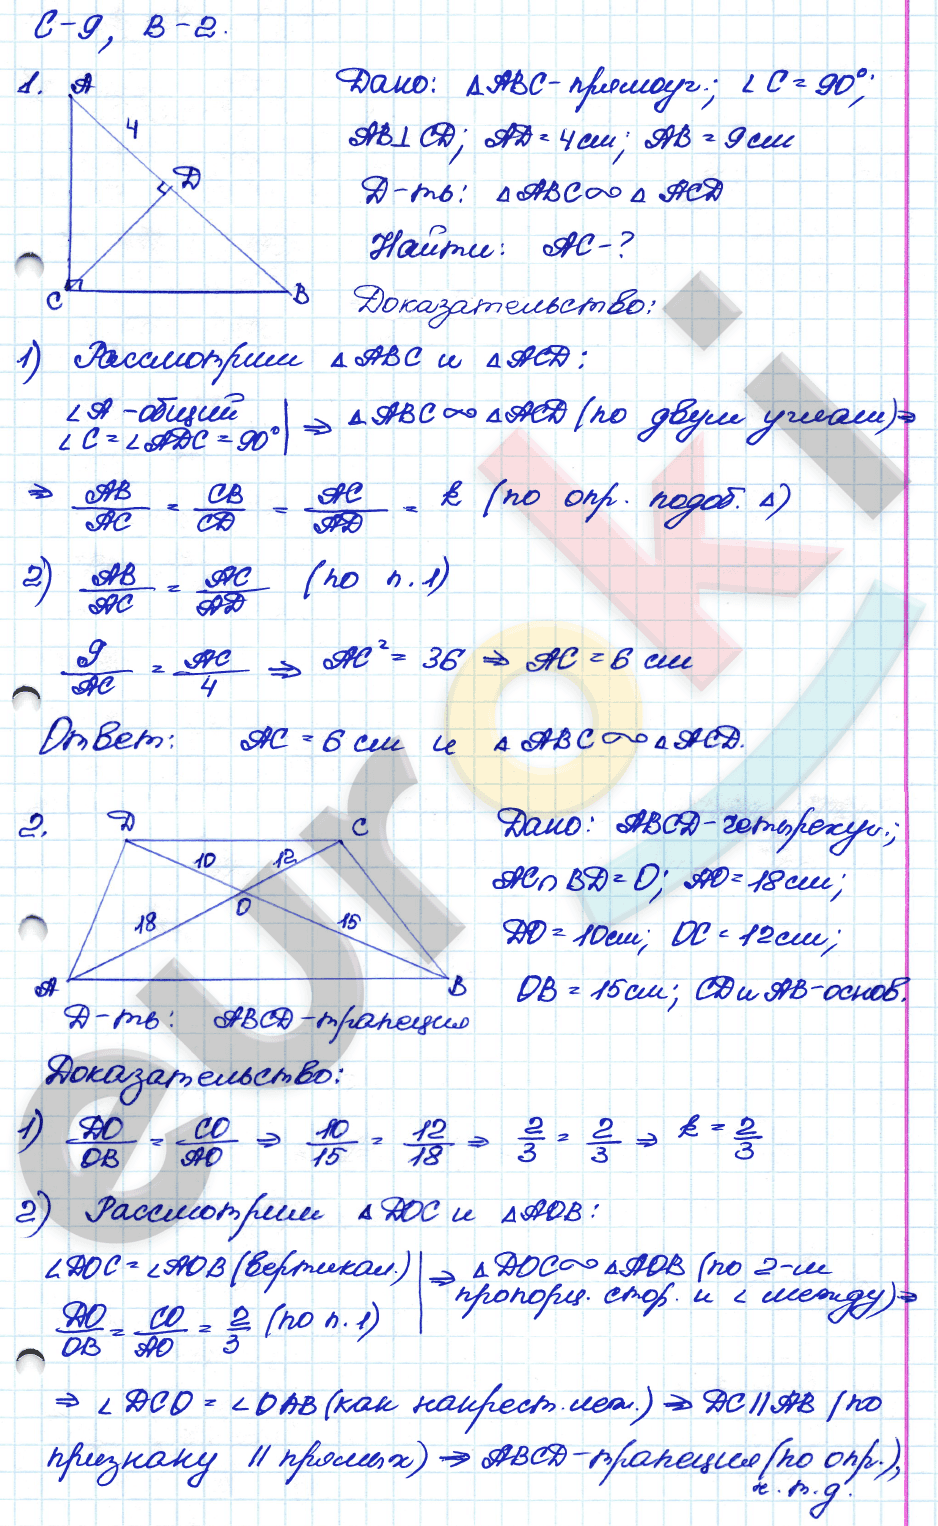 С-9, В-2.
1.
A
4
D
C
B
Дано: △ABC-прямоуг.; ∠C=90°;
AB⊥CD; AD=4см; AB=9см
Д-ть: △ABC∾△ACD
Найти: AC-?
Доказательство:
1) Рассмотрим △ABC и △ACD:
∠A-общий
∠C=∠ADC=90° | ⇒ △ABC∾△ACD (по двум углам)⇒
⇒ AB/AC = CB/CD = AC/AD = k (по опр. подоб. △)
2) AB/AC = AC/AD (по п.1)
9/AC = AC/4 ⇒ AC²=36 ⇒ AC=6 см
Ответ: AC=6 см и △ABC∾△ACD.
2.
D
C
10
12
O
18
15
A
B
Дано: ABCD-четырехуг.;
AC∩BD=O; AO=18см;
DO=10см; OC=12см;
OB=15см; CD и AB-основ.
Д-ть: ABCD-трапеция
Доказательство:
1) DO/OB = CO/AO ⇒ 10/15 = 12/18 ⇒ 2/3 = 2/3 ⇒ k=2/3
2) Рассмотрим △DOC и △AOB:
∠DOC=∠AOB (вертикал.) | ⇒ △DOC∾△AOB (по 2-м
DO/OB = CO/AO = 2/3 (по п.1) | пропорц. стор. и ∠ между)⇒
⇒ ∠DCO = ∠OAB (как накрест.леж.) ⇒ DC||AB (по
признаку || прямых) ⇒ ABCD-трапеция (по опр.),
ч.т.д.
euroki